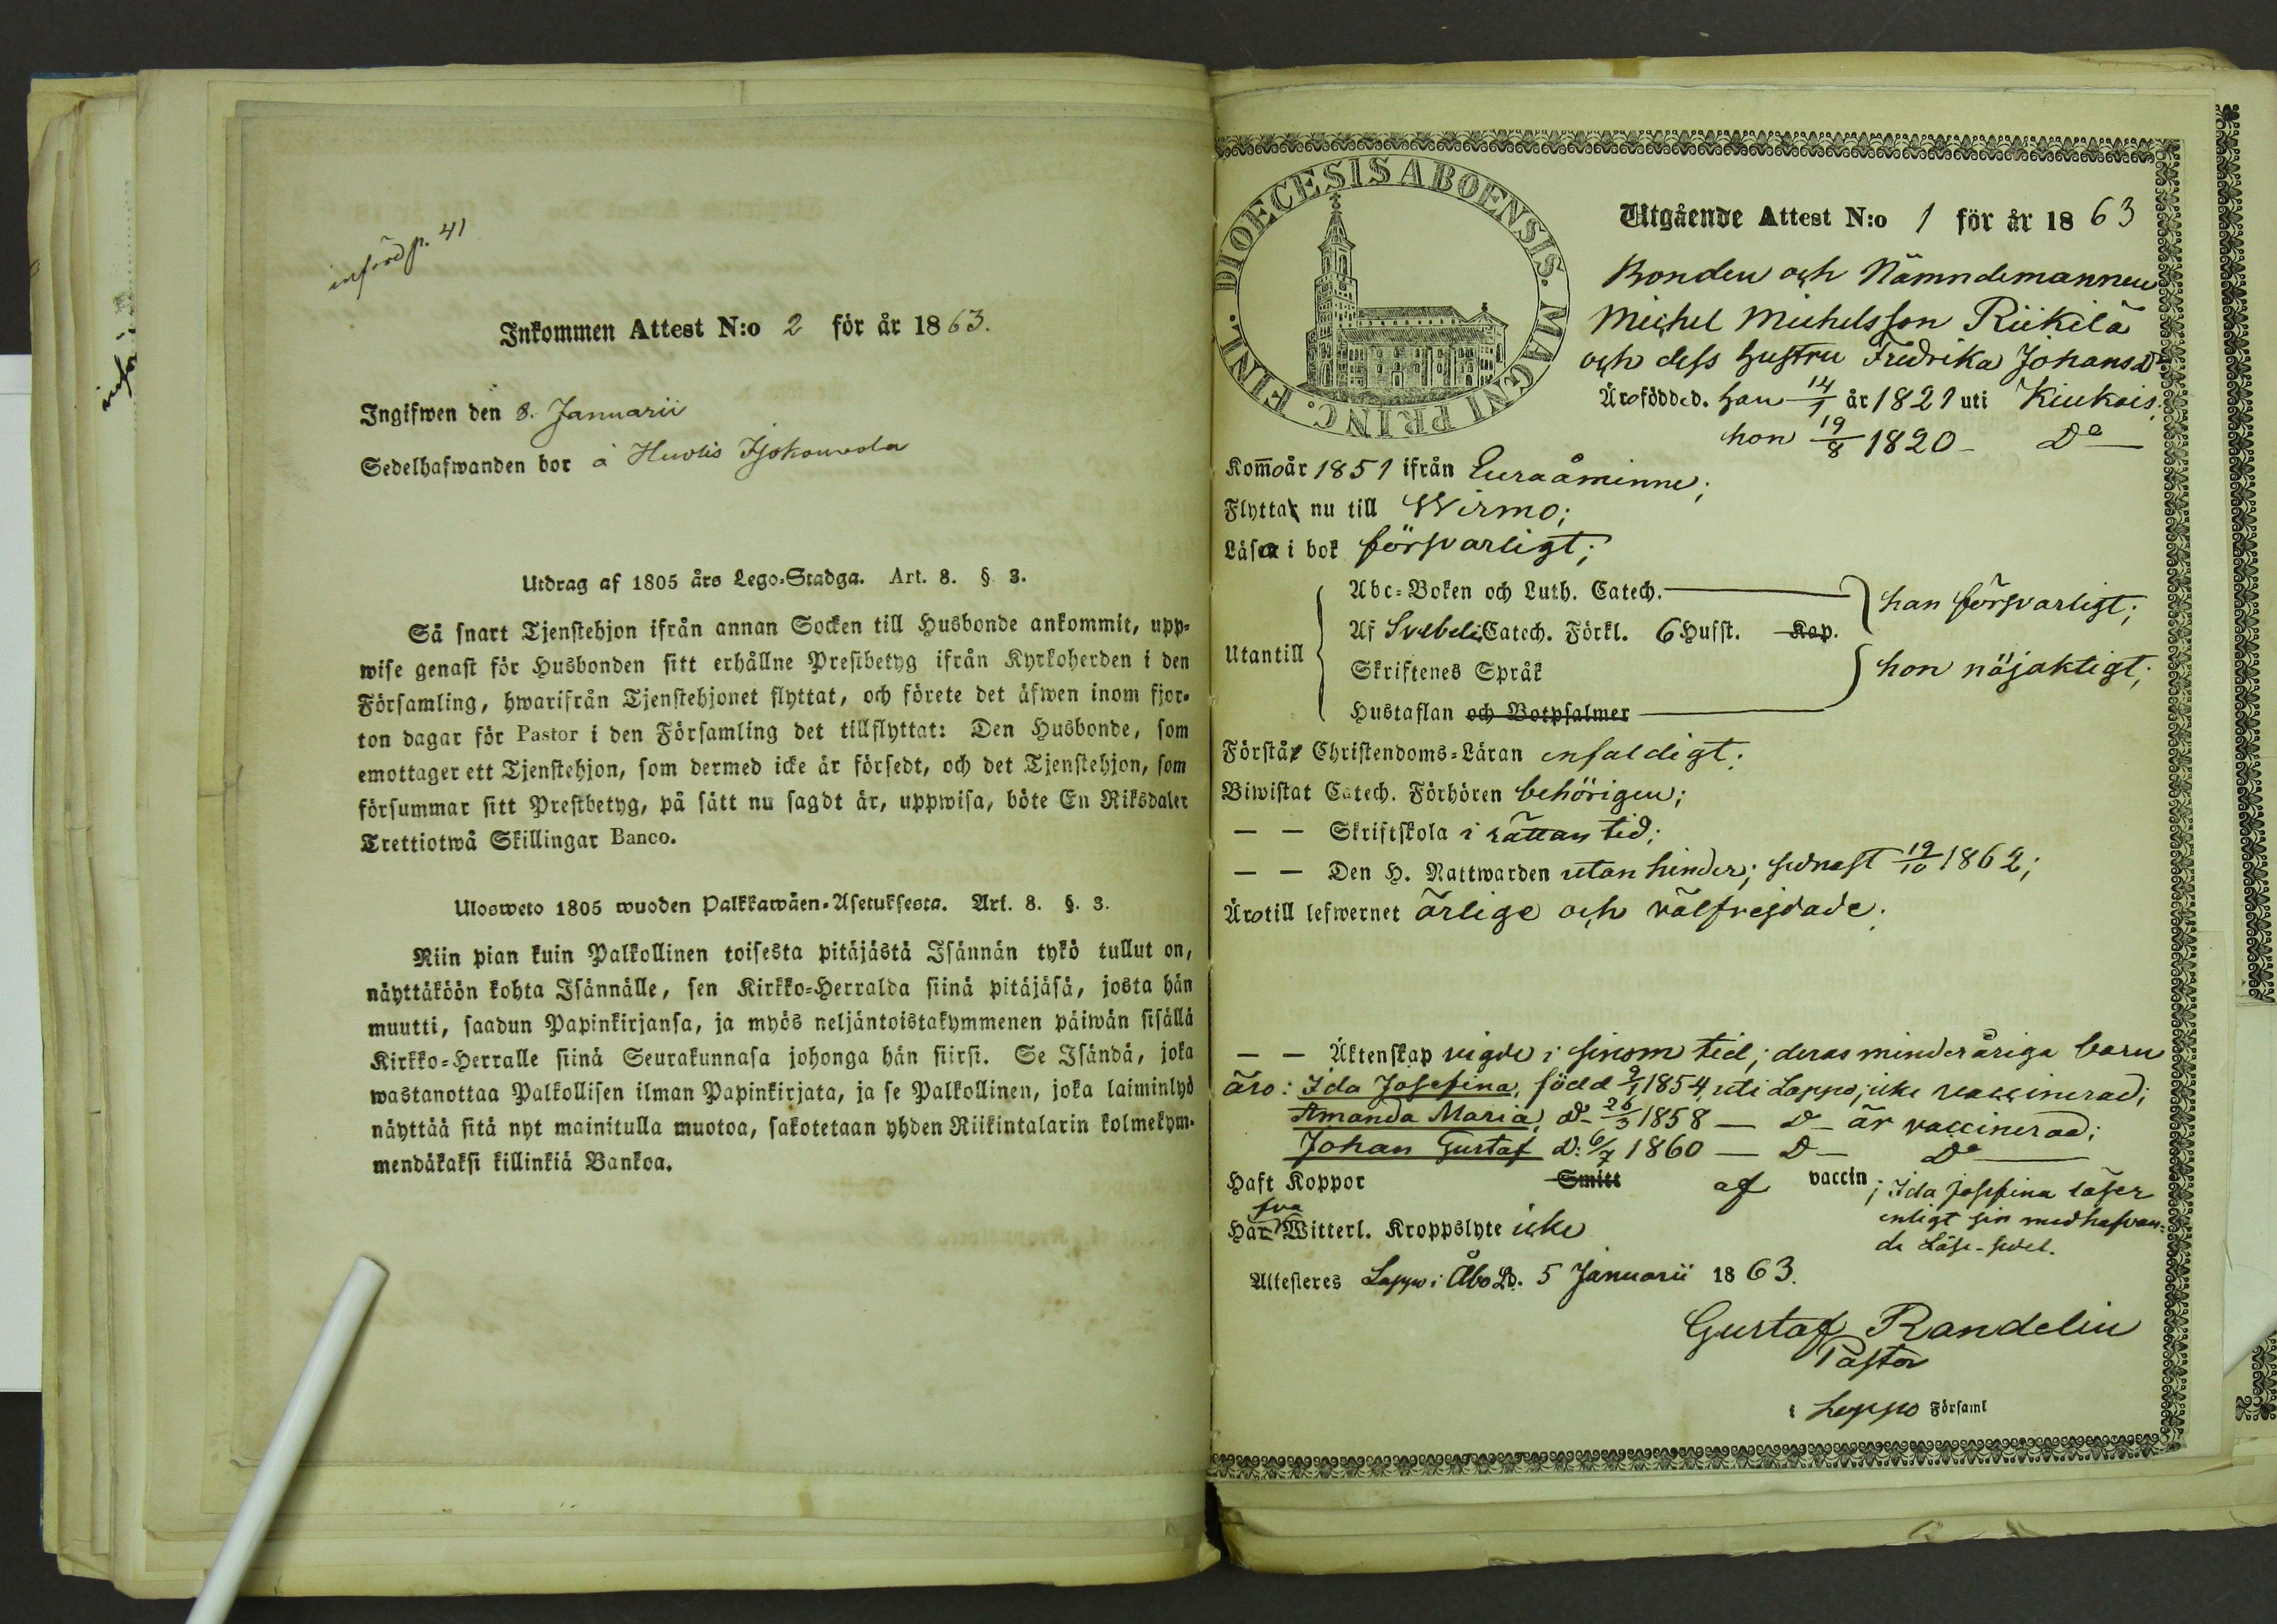 införd p. 41
Inkommen Attest N:o 2 för år 1863.
Ingifwen den 8. Januarii
Sedelhafwanden bor å Huolis
Utdrag af 1805 års Lego-Stadga. Art. 8. § 3.
Så snart Tjenstehjon ifrån annan Socken till Husbonde ankommit, upp-
wise genast för Husbonden sitt erhållne Prestbetyg ifrån Kyrkoherden i den
Församling, hwarifrån Tjenstehjonet flyttat, och förete det äfwen inom fjor-
ton dagar för Pastor i den Församling det tillflyttat: Den Husbonde, som
emottager ett Tjenstehjon, som dermed icke är försedt, och det Tjenstehjon, som
försummar sitt Prestbetyg, på sätt nu sagdt är, uppwisa, böte En Riksdaler
Trettiotwå Skillingar Banco.
Ulosweto 1805 wuoden Palkkawäen-Asetuksesta. Art. 8. §. 3.
Niin pian kuin Palkollinen toisesta pitäjästä Isännän tykö tullut on,
näyttäköön kohta Isännälle, sen Kirkko-Herralda siinä pitäjäsä, josta hän
muutti, saadun Papinkirjansa, ja myös neljäntoistakymmenen päiwän sisällä
Kirkko-Herralle siinä Seurakunnasa johonga hän siirsi. Se Isändä, joka
wastanottaa Palkollisen ilman Papinkirjata, ja se Palkollinen, joka laiminlyö
näyttää sitä nyt mainitulla muotoa, sakotetaan yhden Riikintalarin kolmekym-
mendäkaksi killinkiä Bankoa.
DIOECESIS ABOENSIS. MAGNI PRINC. FINL.
Utgående Attest N:o 1 för år 1863
Bonden och Nämndemannen
Michel Michelsson Riikilä
och dess hustru Fredrika Johansdr
Äro födde d. han 14/1 år 1821 uti Kiukais;
hon 19/8 1820 - Do
Kommo år 1851 ifrån Euraåminne;
Flytta nu till Wirmo;
Läsa i bok försvarligt;
Utantill
Abc-Boken och Luth. Catech.
Af Svebeli Catech. Förkl. 6 Hufst. Kap.
Skriftenes Språk
Hustaflan och Botpsalmer
han försvarligt;
hon nöjaktigt;
Förstå Christendoms-Läran enfaldigt;
Biwistat Catech. Förhören behörigen;
— — Skriftskola i rättan tid;
— — Den H. Nattwarden utan hinder; sednast 19/10 1862;
Äro till lefwernet ärlige och välfrejdade;
— — Äktenskap vigde i sinom tid; deras minderåriga barn
äro: Ida Josefina, född 9/1 1854, uti Lappo; icke vaccinerad;
Amanda Maria, d- 26/3 1858 — d- är vaccinerad;
Johan Gustaf d: 6/7 1860 — d- Do
Haft Koppor Smitt af vaccin; Ida Josefina läser
enligt sin medhafvan-
de Läse-sedel.
Hafva Witterl. Kroppslyte icke
Attesteres Lappo i Åbo Ld. 5 Januarii 1863.
Gustaf Randelin
Pastor
i Lappo Församl